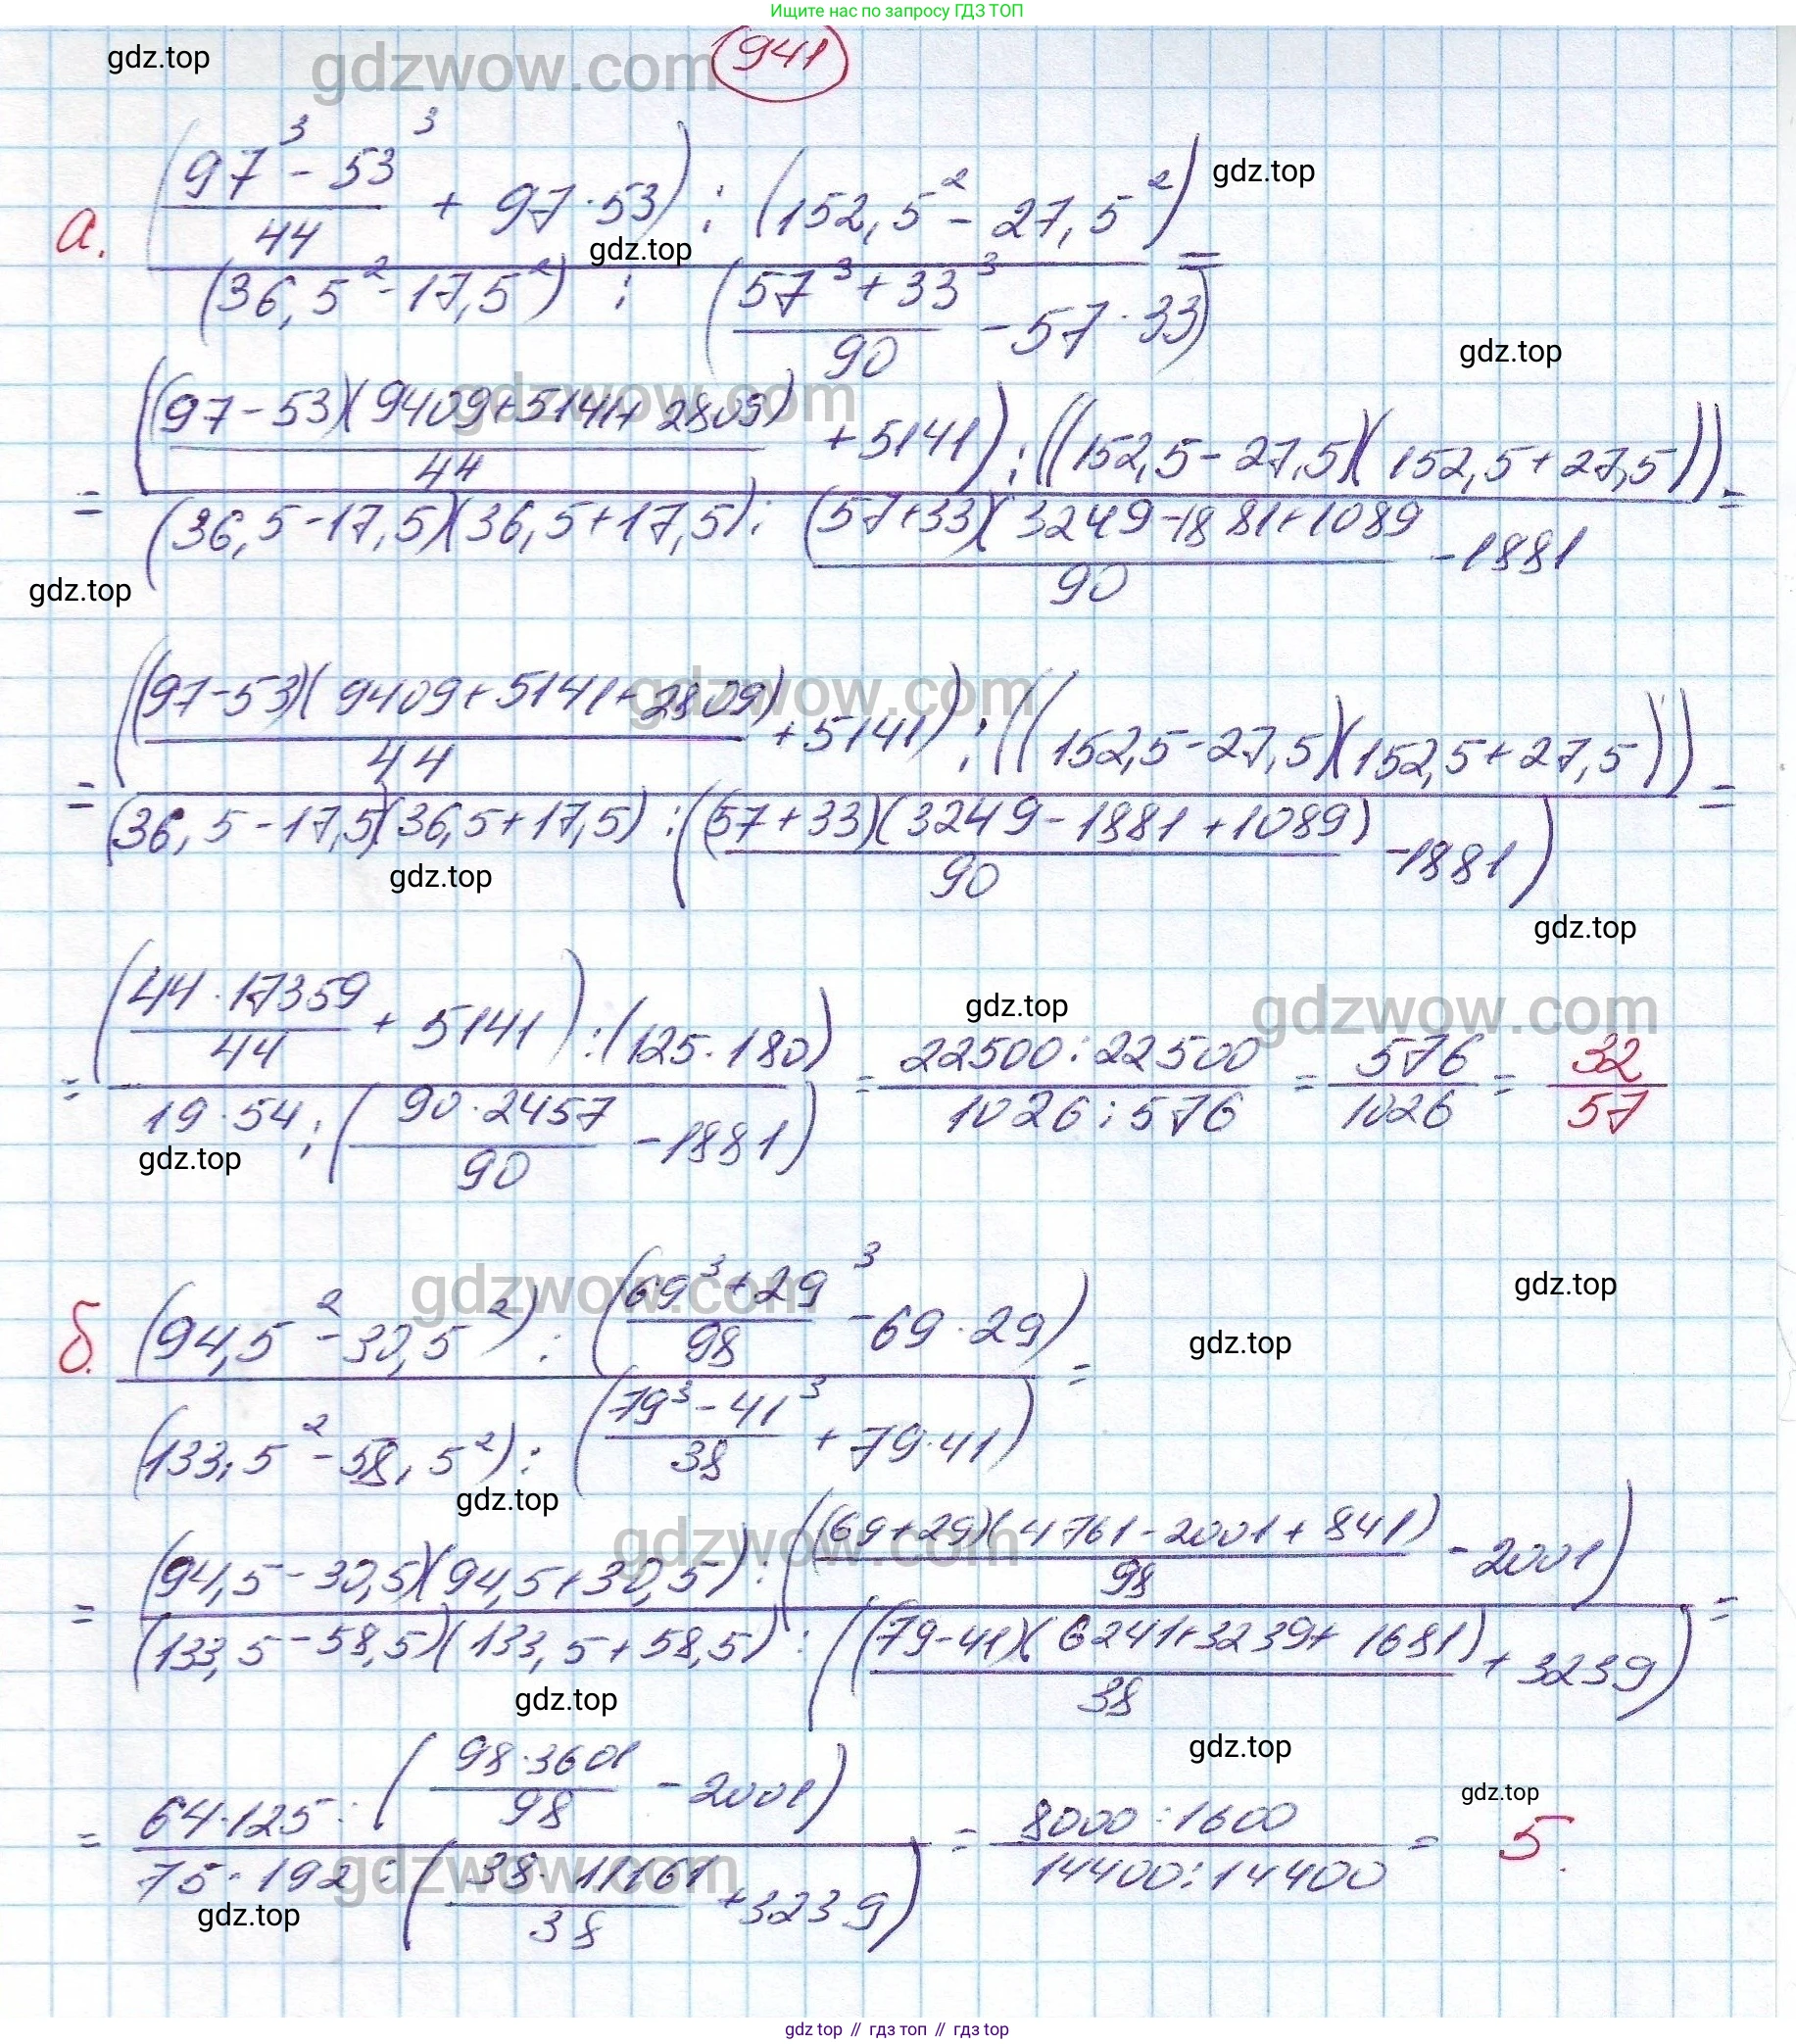 Ищите нас по запросу ГДЗ ТОП
gdz.top
gdzwow.com
941
а. ((97³ - 53³)/44 + 97·53) : (152,5² - 27,5²) =
gdz.top
gdz.top
(36,5² - 17,5²) : ((57³ + 33³)/90 - 57·33)
gdz.top
gdzwow.com
= ((97-53)(9409+5141+2809)/44 + 5141) : ((152,5-27,5)(152,5+27,5)) =
(36,5-17,5)(36,5+17,5) : (57+33)(3249-1881+1089/90 - 1881
gdz.top
gdzwow.com
= ((97-53)(9409+5141+2809)/44 + 5141) : ((152,5-27,5)(152,5+27,5)) =
(36,5-17,5)(36,5+17,5) : ((57+33)(3249-1881+1089)/90 - 1881)
gdz.top
gdz.top
gdz.top
gdzwow.com
= (44·17359/44 + 5141) : (125·180) = 22500:22500 = 576 = 32
19·54 : (90·2457/90 - 1881) 1026:576 1026 57
gdz.top
gdzwow.com
gdz.top
б. (94,5² - 30,5²) : ((69³ + 29³)/98 - 69·29) =
gdz.top
(133,5² - 58,5²) : ((79³ - 41³)/38 + 79·41)
gdz.top
gdzwow.com
= (94,5-30,5)(94,5+30,5) : ((69+29)(4761-2001+841)/98 - 2001) =
(133,5-58,5)(133,5+58,5) : ((79-41)(6241+3239+1681)/38 + 3239)
gdz.top
gdz.top
gdz.top
= 64·125 : (98·3601/98 - 2001) = 8000:1600 = 5.
75·192 : (38·11161/38 + 3239) 14400:14400
gdzwow.com
gdz.top
gdz.top // гдз топ // гдз top